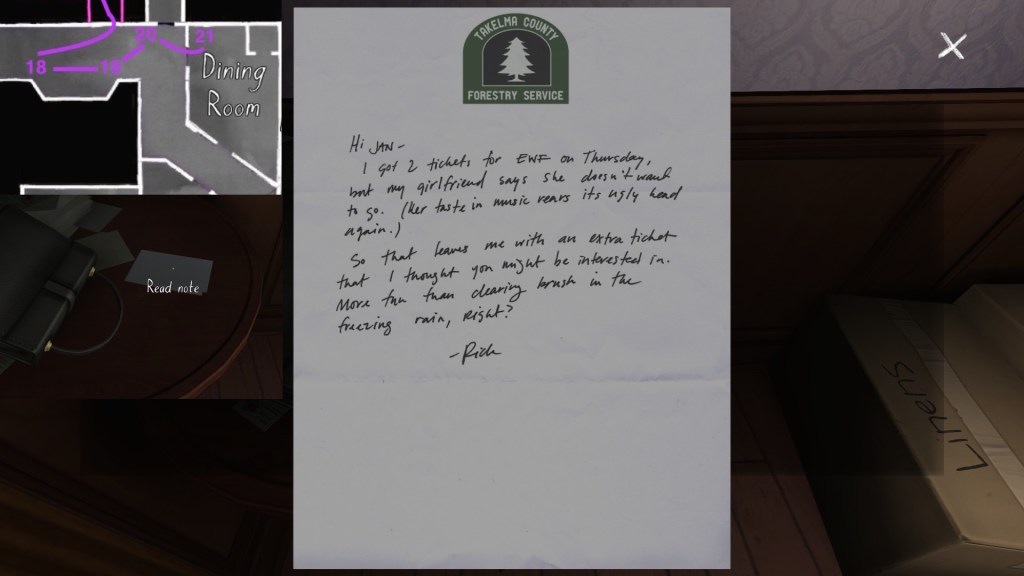 20
21
18
19
Dining
Room
Read note
TAKELMA COUNTY
FORESTRY SERVICE
Hi JAN-
I got 2 tickets for EWF on Thursday,
but my girlfriend says she doesn't want
to go. (Her taste in music rears its ugly head
again.)
So that leaves me with an extra ticket
that I thought you might be interested in.
More fun than clearing brush in the
freezing rain, right?
-Rick
LINENS